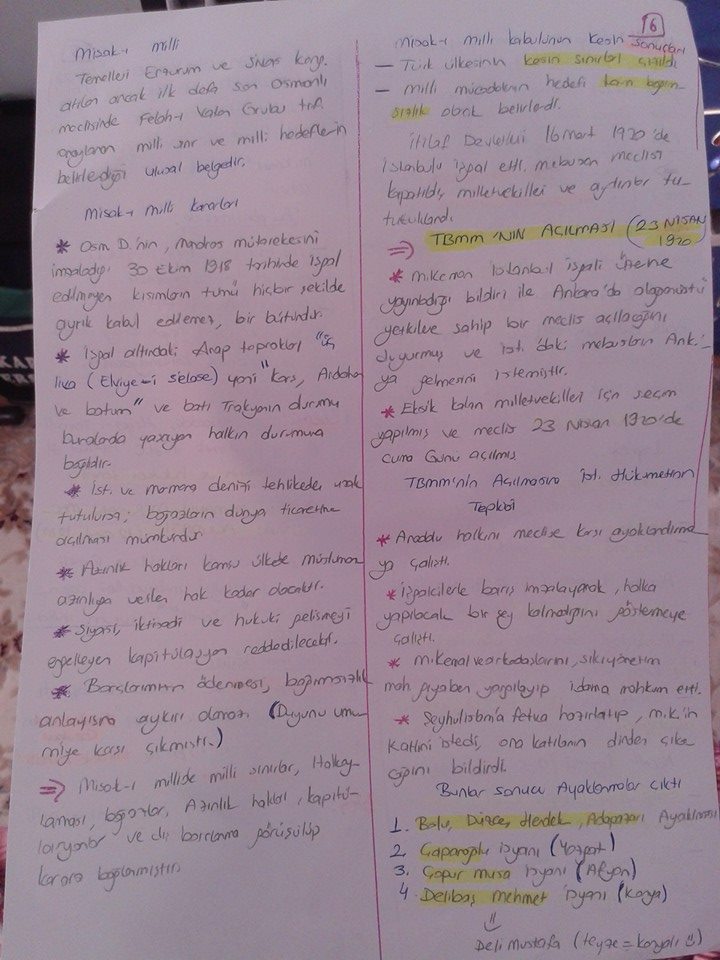 16
Misak-ı Milli
Temelleri Erzurum ve Sivas Kong.
atılan ancak ilk defa son Osmanlı
meclisinde Felah-ı Vatan Grubu trf.
onaylanan milli sınır ve milli hedeflerin
belirlendiği ulusal belgedir.
Misak-ı Milli kararları
* Osm D.'nin, Mondros mütarekesini
imzaladığı 30 Ekim 1918 tarihinde işgal
edilmeyen kısımların tümü hiçbir şekilde
ayrılık kabul edilemez, bir bütündür.
* İşgal altındaki Arap toprakları "üç
liva (Elviye-i Selase) yani "Kars, Ardahan
ve batum" ve batı Trakyanın durumu
buralarda yaşayan halkın durumuna
bağlıdır.
* İst. ve marmara denizi tehlikeden uzak
tutulursa; boğazların dünya ticaretine
açılması mümkündür
* Azınlık hakları komşu ülkede müslüman
azınlığa verilen hak kadar olacaktır.
* Siyasi, iktisadi ve hukuki gelişmeyi
engelleyen kapitülasyon reddedilecektir.
* Borçlarımızın ödenmesi, bağımsızlık
anlayışına aykırı olamaz (Duyunu umu
miye karşı çıkmıştır.)
⇒ Misak-ı millide milli sınırlar, Halkoy-
laması, boğazlar, Azınlık hakları, kapitü-
lasyonlar ve dış borçlanma görüşülüp
karara bağlanmıştır.
misak-ı milli kabulünün kesin sonuçları
— Türk ülkesinin kesin sınırları çizildi
— milli mücadelenin hedefi tam bağım-
sızlık olarak belirlendi.
İtilaf Devletleri 16 mart 1920'de
istanbulu işgal etti. mebusan meclisi
kapatıldı, milletvekilleri ve aydınlar tu-
tuklandı.
⇒ TBMM'NİN AÇILMASI (23 NİSAN
1920)
* m.kemal istanbul işgali üzerine
yayınladığı bildiri ile Ankara'da olağanüstü
yetkilere sahip bir meclis açılacağını
duyurmuş ve ist.'daki mebusların Ank.'-
ya gelmesini istemiştir.
* Eksik kalan milletvekilleri için seçim
yapılmış ve meclis 23 Nisan 1920'de
cuma Günü açılmış
TBMM'nin Açılmasına İst. Hükümetinin
Tepkisi
* Anadolu halkını meclise karşı ayaklandırma
ya çalıştı.
* İşgalcilerle barış imzalayarak, halka
yapılacak bir şey kalmadığını göstermeye
çalıştı.
* m.kemal ve arkadaşlarını, sıkıyönetim
mah. gıyaben yargılayıp idama mahkum etti.
* Şeyhulislam'a fetva hazırlatıp, m.k.'in
katlini istedi, ona katılanın dinden çıka
cağını bildirdi.
Bunlar sonucu Ayaklanmalar çıktı
1. Bolu, Düzce, Hendek, Adapazarı Ayaklanması
2. Çapanoğlu isyanı (Yozgat)
3. Çopur musa isyanı (Afyon)
4. Delibaş mehmet isyanı (Konya)
Deli Mustafa (teyze = konyalı)